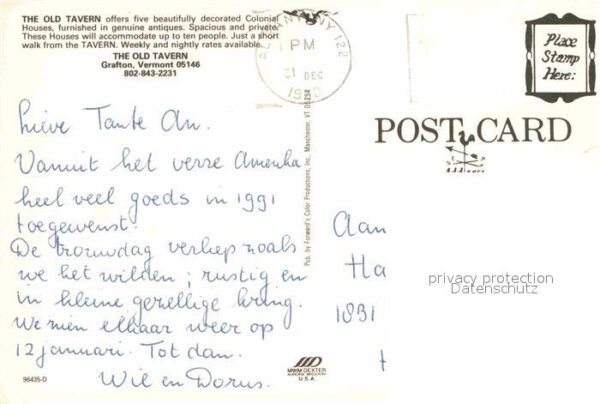 THE OLD TAVERN offers five beautifully decorated Colonial
Houses, furnished in genuine antiques. Spacious and private.
These Houses will accommodate up to ten people. Just a short
walk from the TAVERN. Weekly and nightly rates available.
THE OLD TAVERN
Grafton, Vermont 05146
802-843-2231
ALBANY NY 122
PM
31 DEC
1990
Place
Stamp
Here:
POST CARD
Address
Lieve Tante An.
Vanuit het verre Amerika
heel veel goeds in 1991
toegewenst.
De trouwdag verliep zoals
we het wilden; rustig en
in kleine gezellige kring.
We zien elkaar weer op
12 januari. Tot dan.
Wil en Dorus.
Pub. by Forward's Color Productions, Inc. Manchester, VT 05254
Aan
Ha
1831
privacy protection
Datenschutz
MWM DEXTER
AURORA MISSOURI
U.S.A.
96435-D